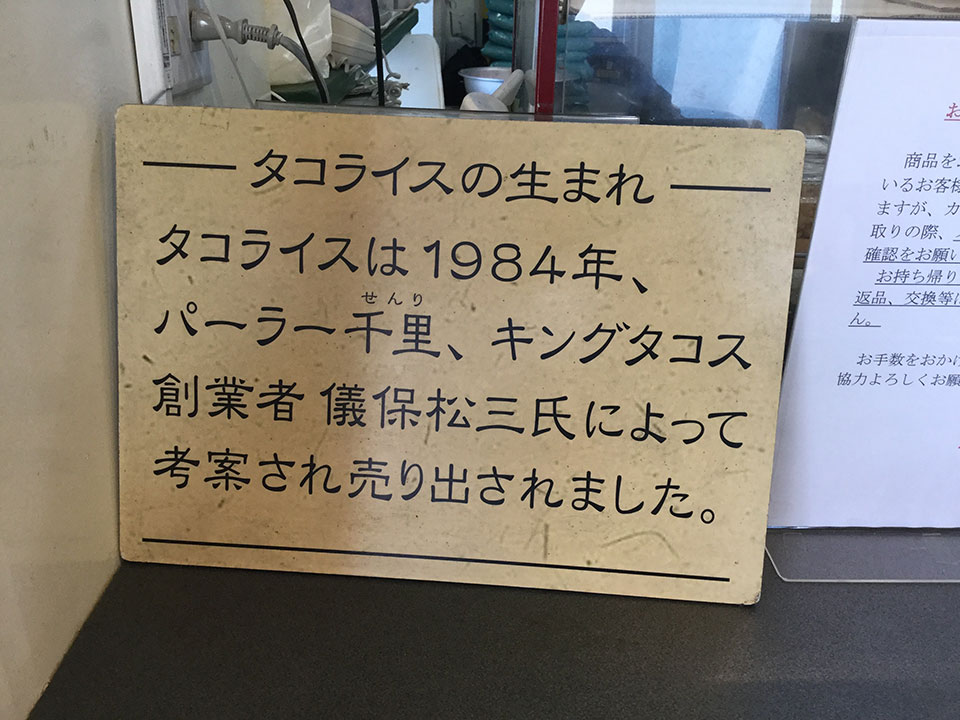 タコライスの生まれ
タコライスは1984年、
せんり
パーラー千里、キングタコス
創業者 儀保松三氏によって
考案され売り出されました。
お
商品を
いるお客様
ますが、カ
取りの際、
確認をお願い
お持ち帰り
返品、交換等に
ん。
お手数をおかけ
協力よろしくお願